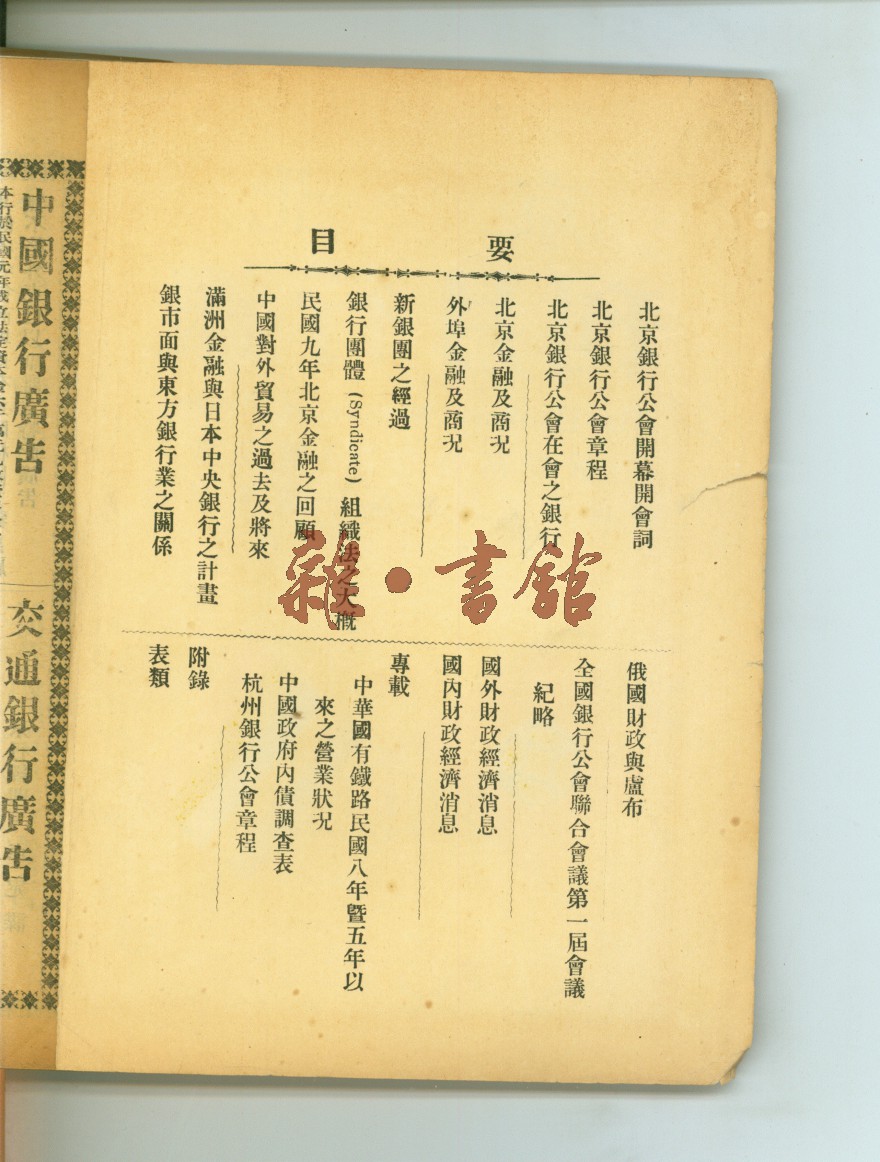 要目
北京銀行公會開幕開會詞
北京銀行公會章程
北京銀行公會在會之銀行
北京金融及商況
外埠金融及商況
新銀團之經過
銀行團體(Syndicate)組織法之大概
民國九年北京金融之回顧
中國對外貿易之過去及將來
滿洲金融與日本中央銀行之計畫
銀市面與東方銀行業之關係
俄國財政與盧布
全國銀行公會聯合會議第一屆會議
紀略
國外財政經濟消息
國內財政經濟消息
專載
中華國有鐵路民國八年曁五年以
來之營業狀況
中國政府內債調查表
杭州銀行公會章程
附錄
表類
中國銀行廣告
交通銀行廣告
雜·書館